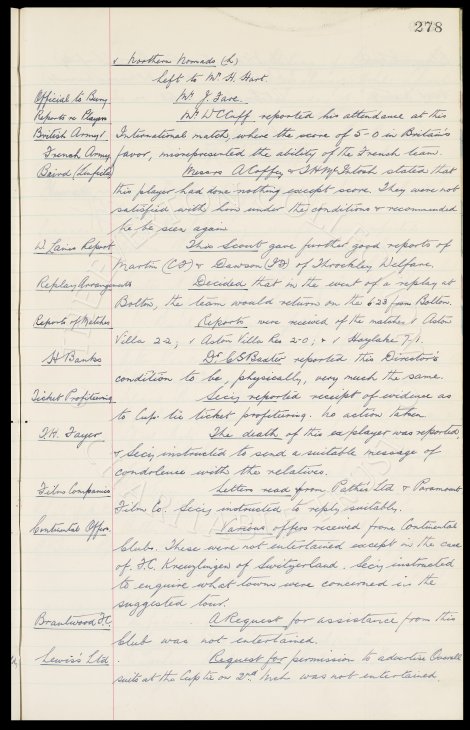 278
v Northern Nomads (h)
Left to Mr H. Hart.
Official to Bury Mr J. Fare.
Reports re Players Mr W C Cuff reported his attendance at this
British Army v International match, where the score of 5-0 in Britain's
French Army favor, misrepresented the ability of the French team.
Baird (Linfield) Messrs A Coffey & T H McIntosh stated that
this player had done nothing except score. They were not
satisfied with him under the conditions & recommended
he be seen again
W. Lanes Report This Scout gave further good reports of
Martin & Dawson of Throckley Welfare.
Replay Arrangements Decided that in the event of a replay at
Bolton, the team would return on the 6-23 from Bolton.
Reports of Matches Reports were received of the matches v Aston
Villa 2-2; v Aston Villa Res 2-0; & v Hoylake 7-1.
H. Banks Dr C S Baxter reported this Director's
condition to be, physically, very much the same.
Ticket Profiteering Secy. reported receipt of evidence as
to Cup tie ticket profiteering. No action taken.
The death of this ex player was reported,
& Secy. instructed to send a suitable message of
condolence with the relatives.
Films Companies Letters read from Pathe's Ltd & Paramount
Film Co. Secy. instructed to reply suitably.
Continental Offers. Various offers received from Continental
Clubs. These were not entertained except in the case
of F.C. Kreuzlingen of Switzerland. Secy. instructed
to enquire what towns were concerned in the
suggested tour.
Brantwood F.C. A Request for assistance from this
Club was not entertained.
Lewis's Ltd Request for permission to advertise Overall
suits at the Cup tie on 2nd Mch was not entertained.